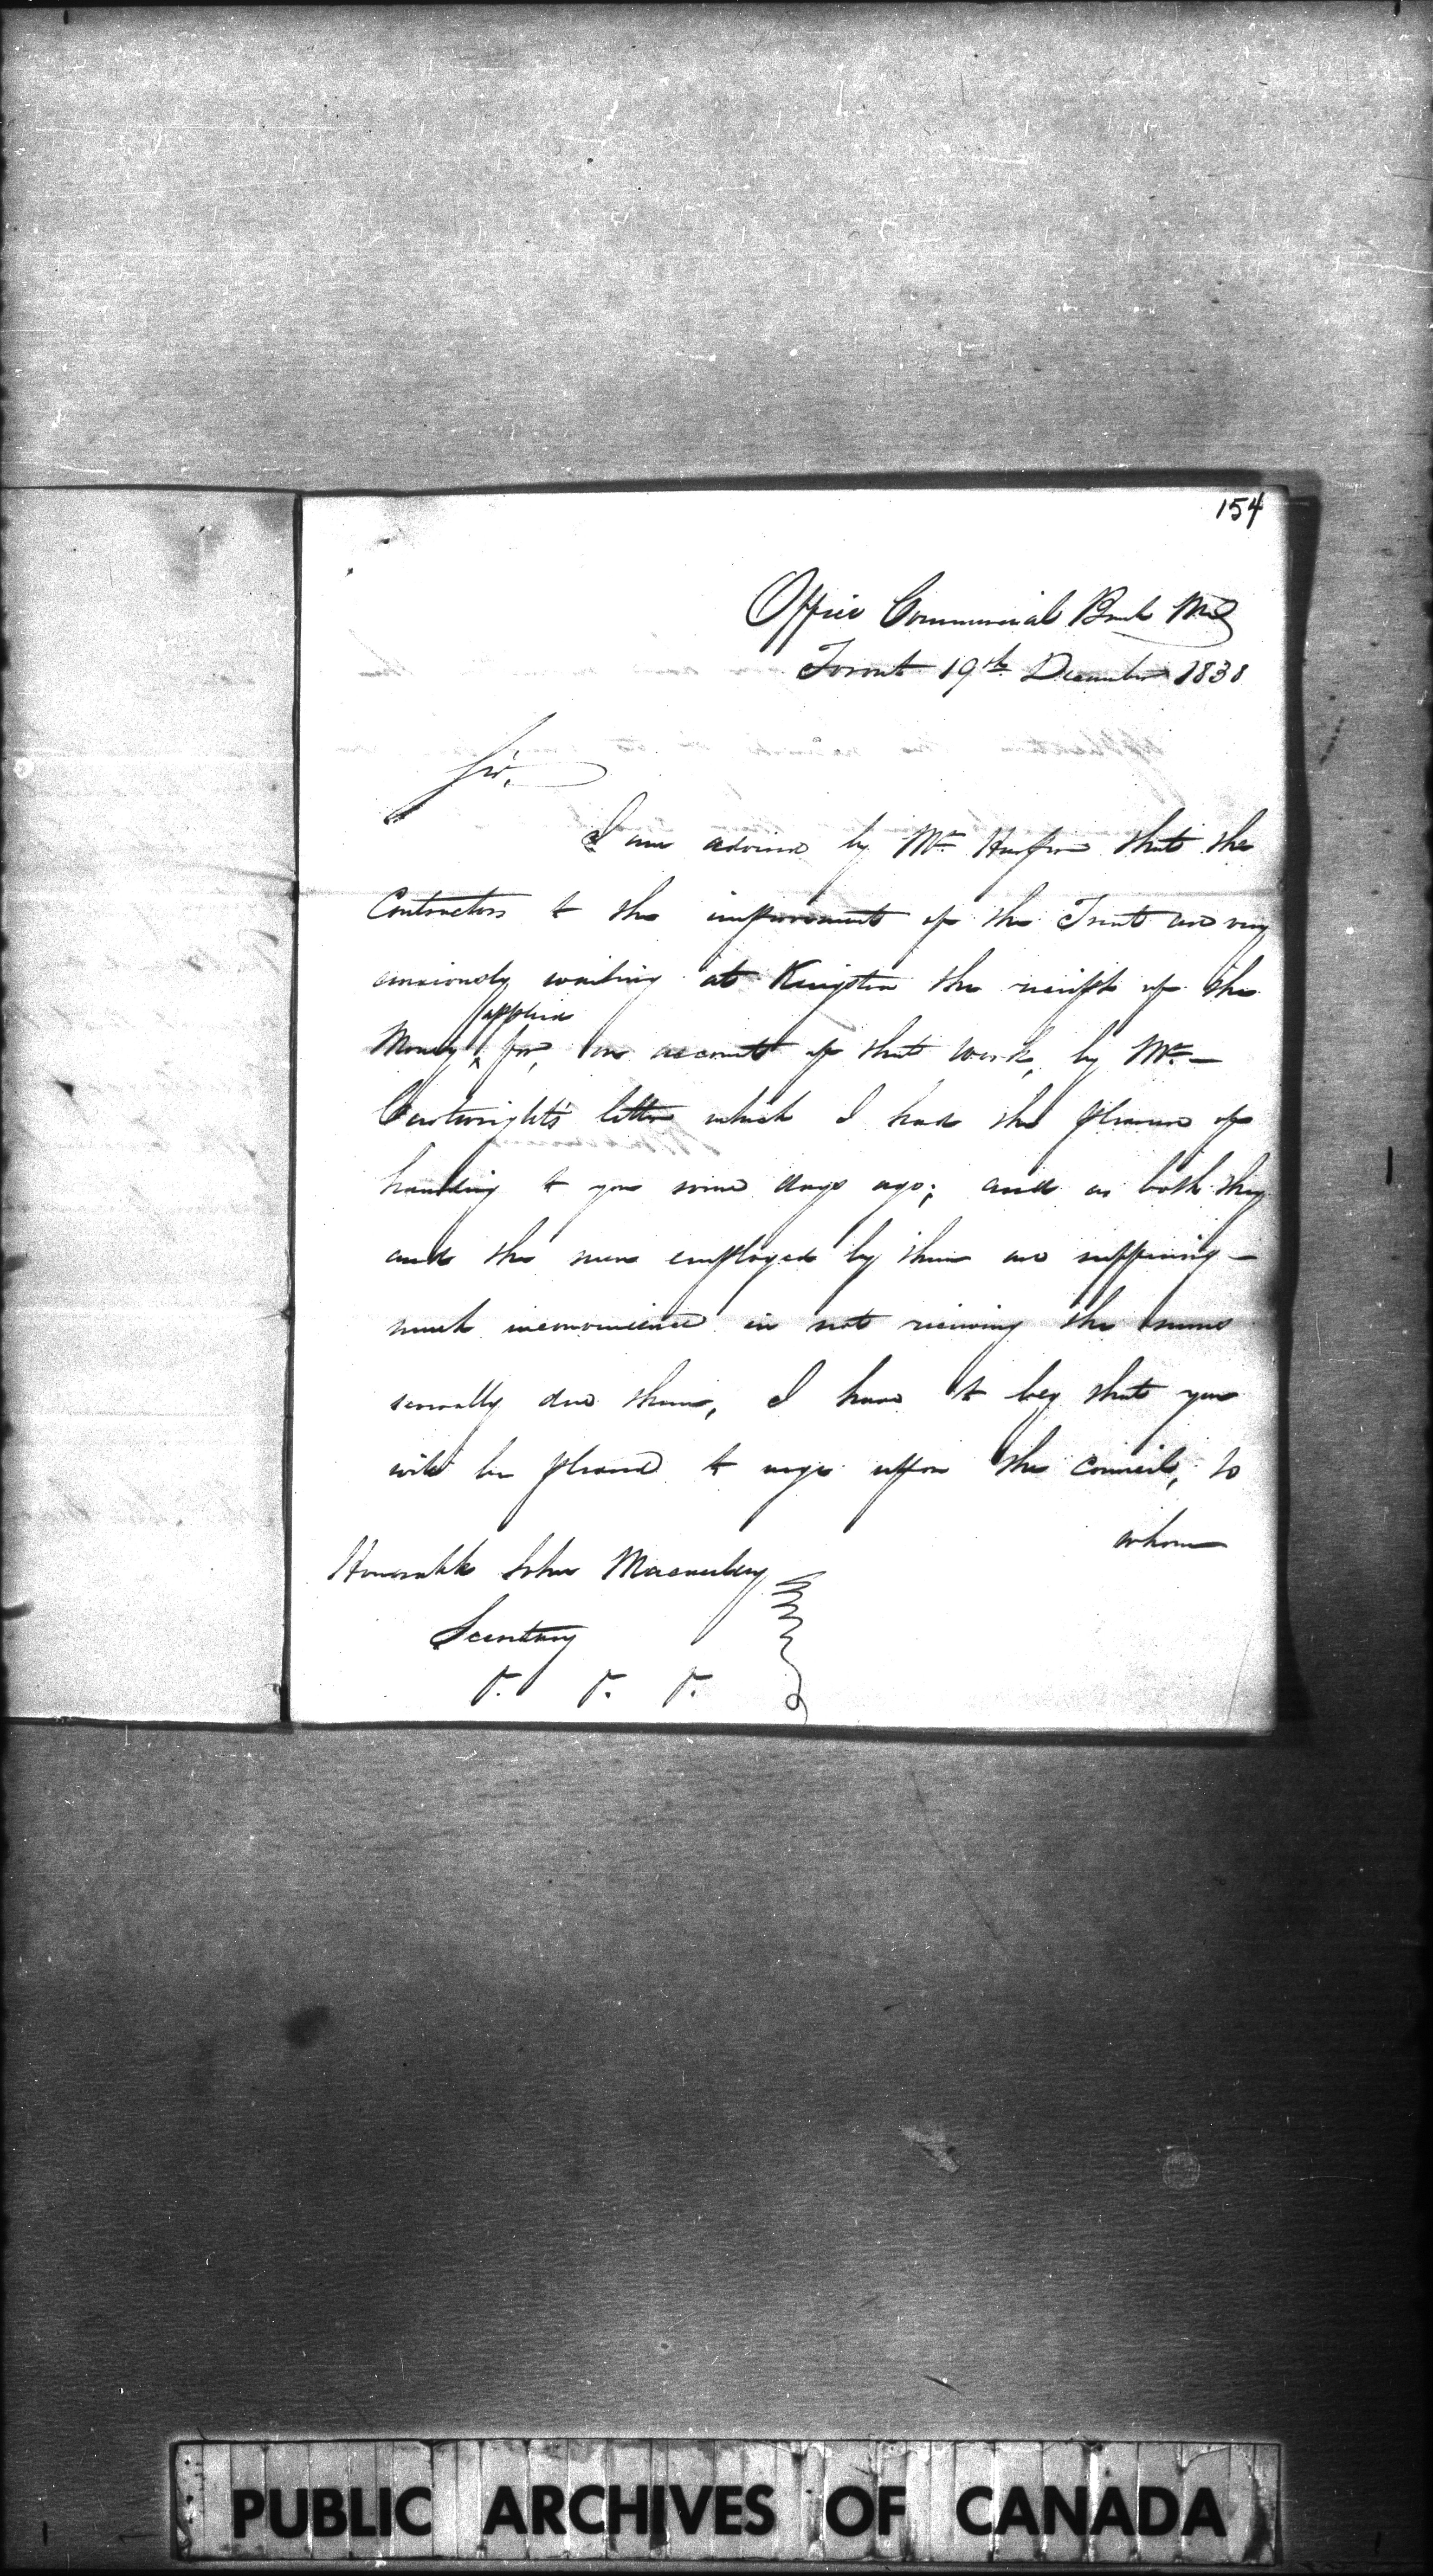 154
Office Commercial Bank M.D
Toronto 19th December 1838
Sir,
I am advised by Mr. Harper that the
Contractors to the improvement of the Trent are very
anxiously waiting at Kingston the receipt of the
applied
Money ^ for, on account of that work, by Mr. —
Cartwright's letter which I had the pleasure of
handing to you some days ago; and as both they
and the men employed by them are suffering —
much inconvenience in not receiving the sums
severally due them, I have to beg that you
will be pleased to urge upon the Council, to
whom
Honorable John Macaulay
Secretary
&. &. &.
PUBLIC ARCHIVES OF CANADA